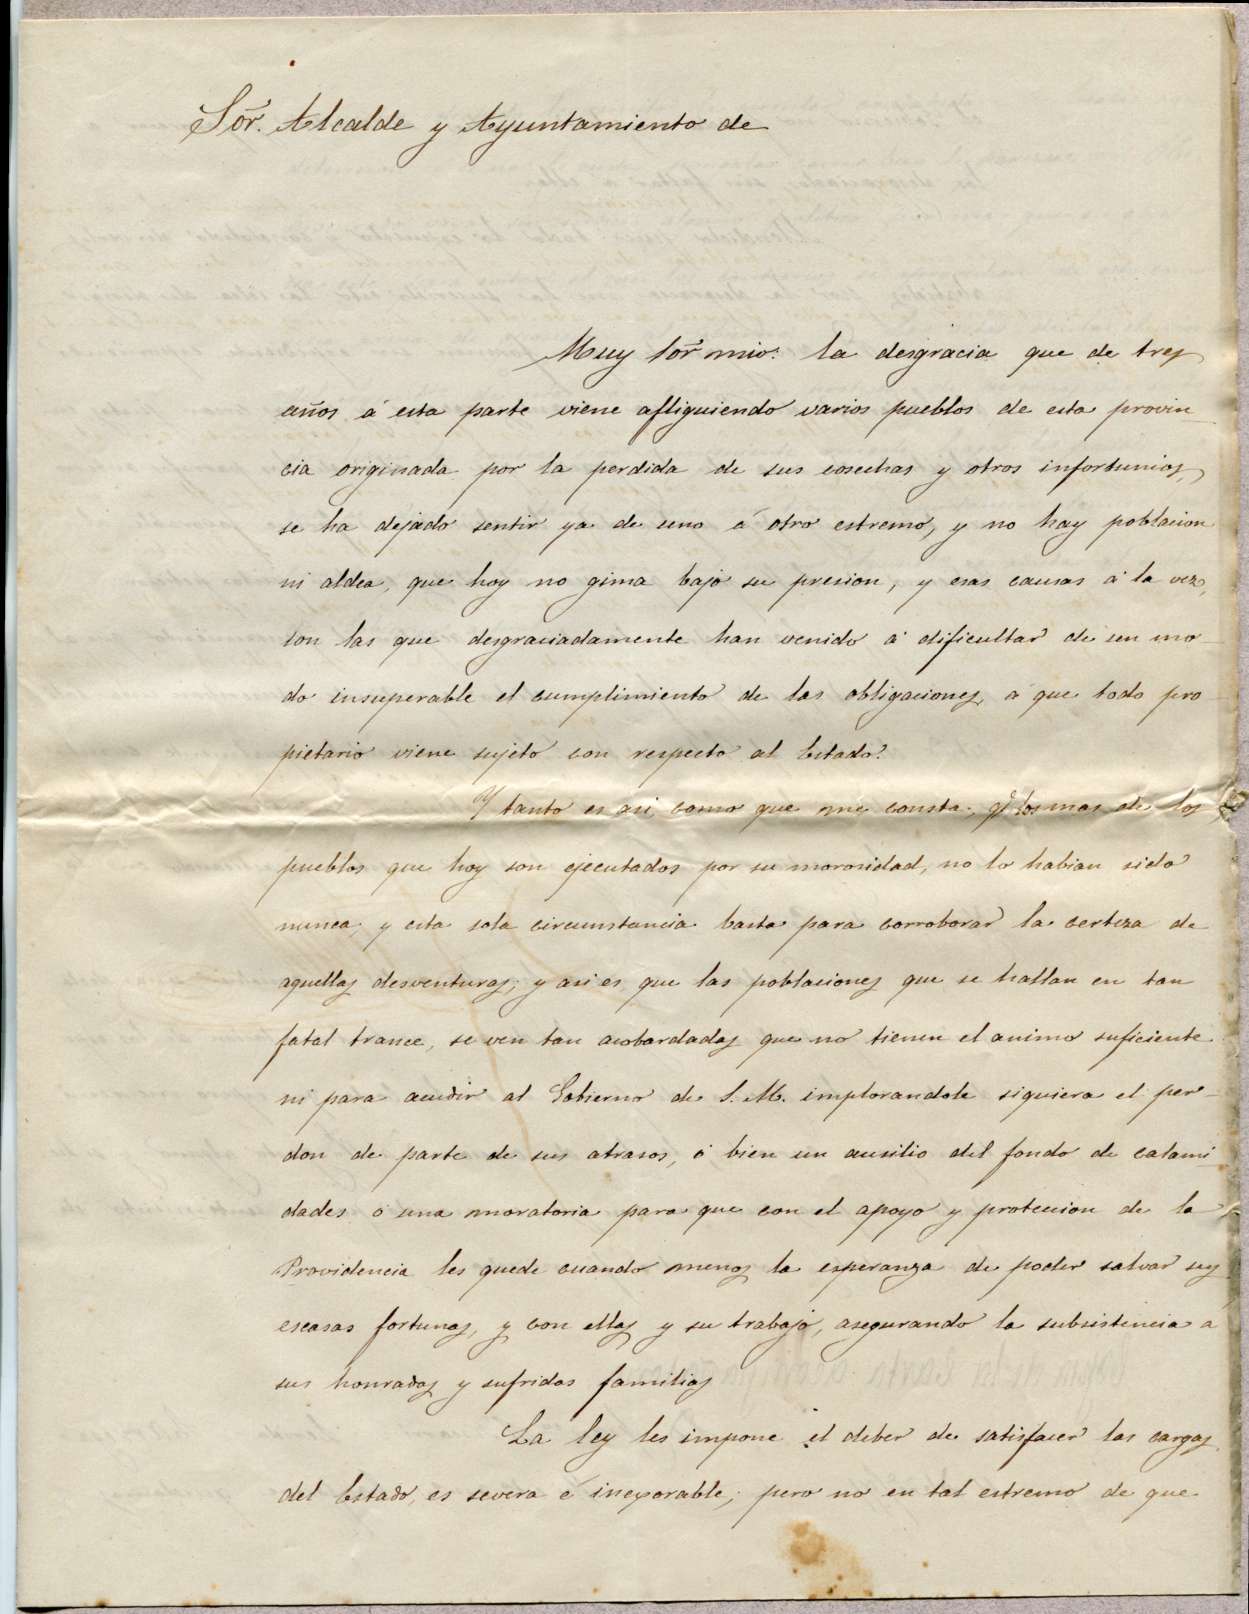 Sor. Alcalde y Ayuntamiento de
Muy Sor mio: la desgracia que de tres
años á esta parte viene afliguiendo varios pueblos de esta provin
cia originada por la perdida de sus cosechas y otros infortunios,
se ha dejado sentir ya de uno á otro estremo, y no hay poblacion
ni aldea, que hoy no gima bajo su presion, y esas causas á la vez,
son las que desgraciadamente han venido á dificultar de un mo
do insuperable el cumplimiento de las obligaciones, á que todo pro
pietario viene sujeto con respecto al Estado.
Y tanto es asi, como que me consta, qe los mas de los
pueblos que hoy son ejecutados por su morosidad, no lo habian sido
nunca, y esta sola circunstancia basta para corroborar la certeza de
aquellas desventuras; y asi es que las poblaciones que se hallan en tan
fatal trance, se ven tan acobardadas que no tienen el animo suficiente
ni para acudir al Gobierno de S. M. implorandole siquiera el per-
don de parte de sus atrasos, ó bien un ausilio del fondo de calami-
dades ó una moratoria para que con el apoyo y proteccion de la
Providencia les quede cuando menos la esperanza de poder salvar sus
escasas fortunas, y con ellas y su trabajo, asegurando la subsistencia a
sus honradas y sufridas familias
La ley les impone el deber de satisfacer las cargas
del Estado, es severa é inexorable; pero no en tal estremo de que